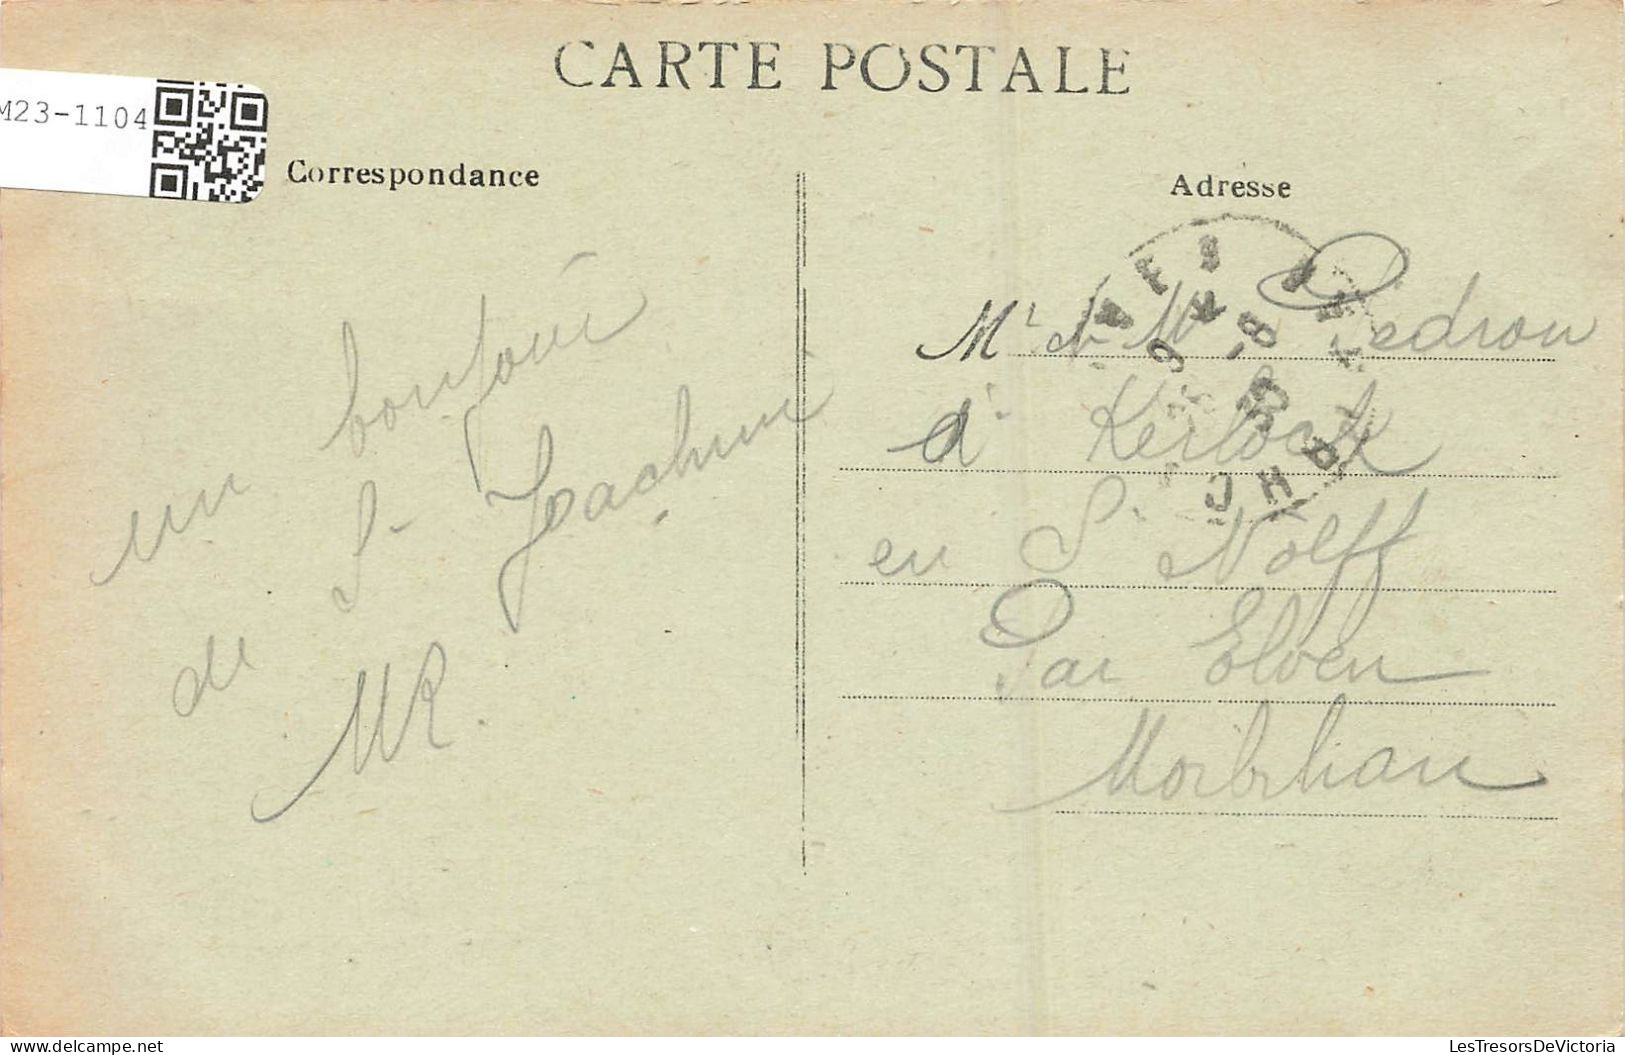 CARTE POSTALE
M23-1104
Correspondance
un bonjour
de St Joachim
MR.
Adresse
Mr et Me Pedron
à Kerlock
en St Nolff
Par Elven
Morbihan
www.LesTresorsDeVictoria.com